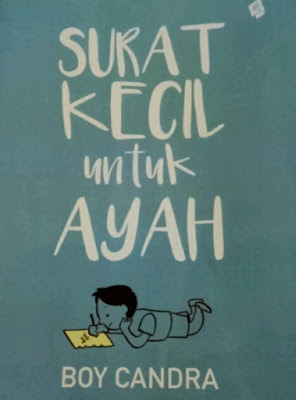 SURAT
KECIL
untuk
AYAH
BOY CANDRA